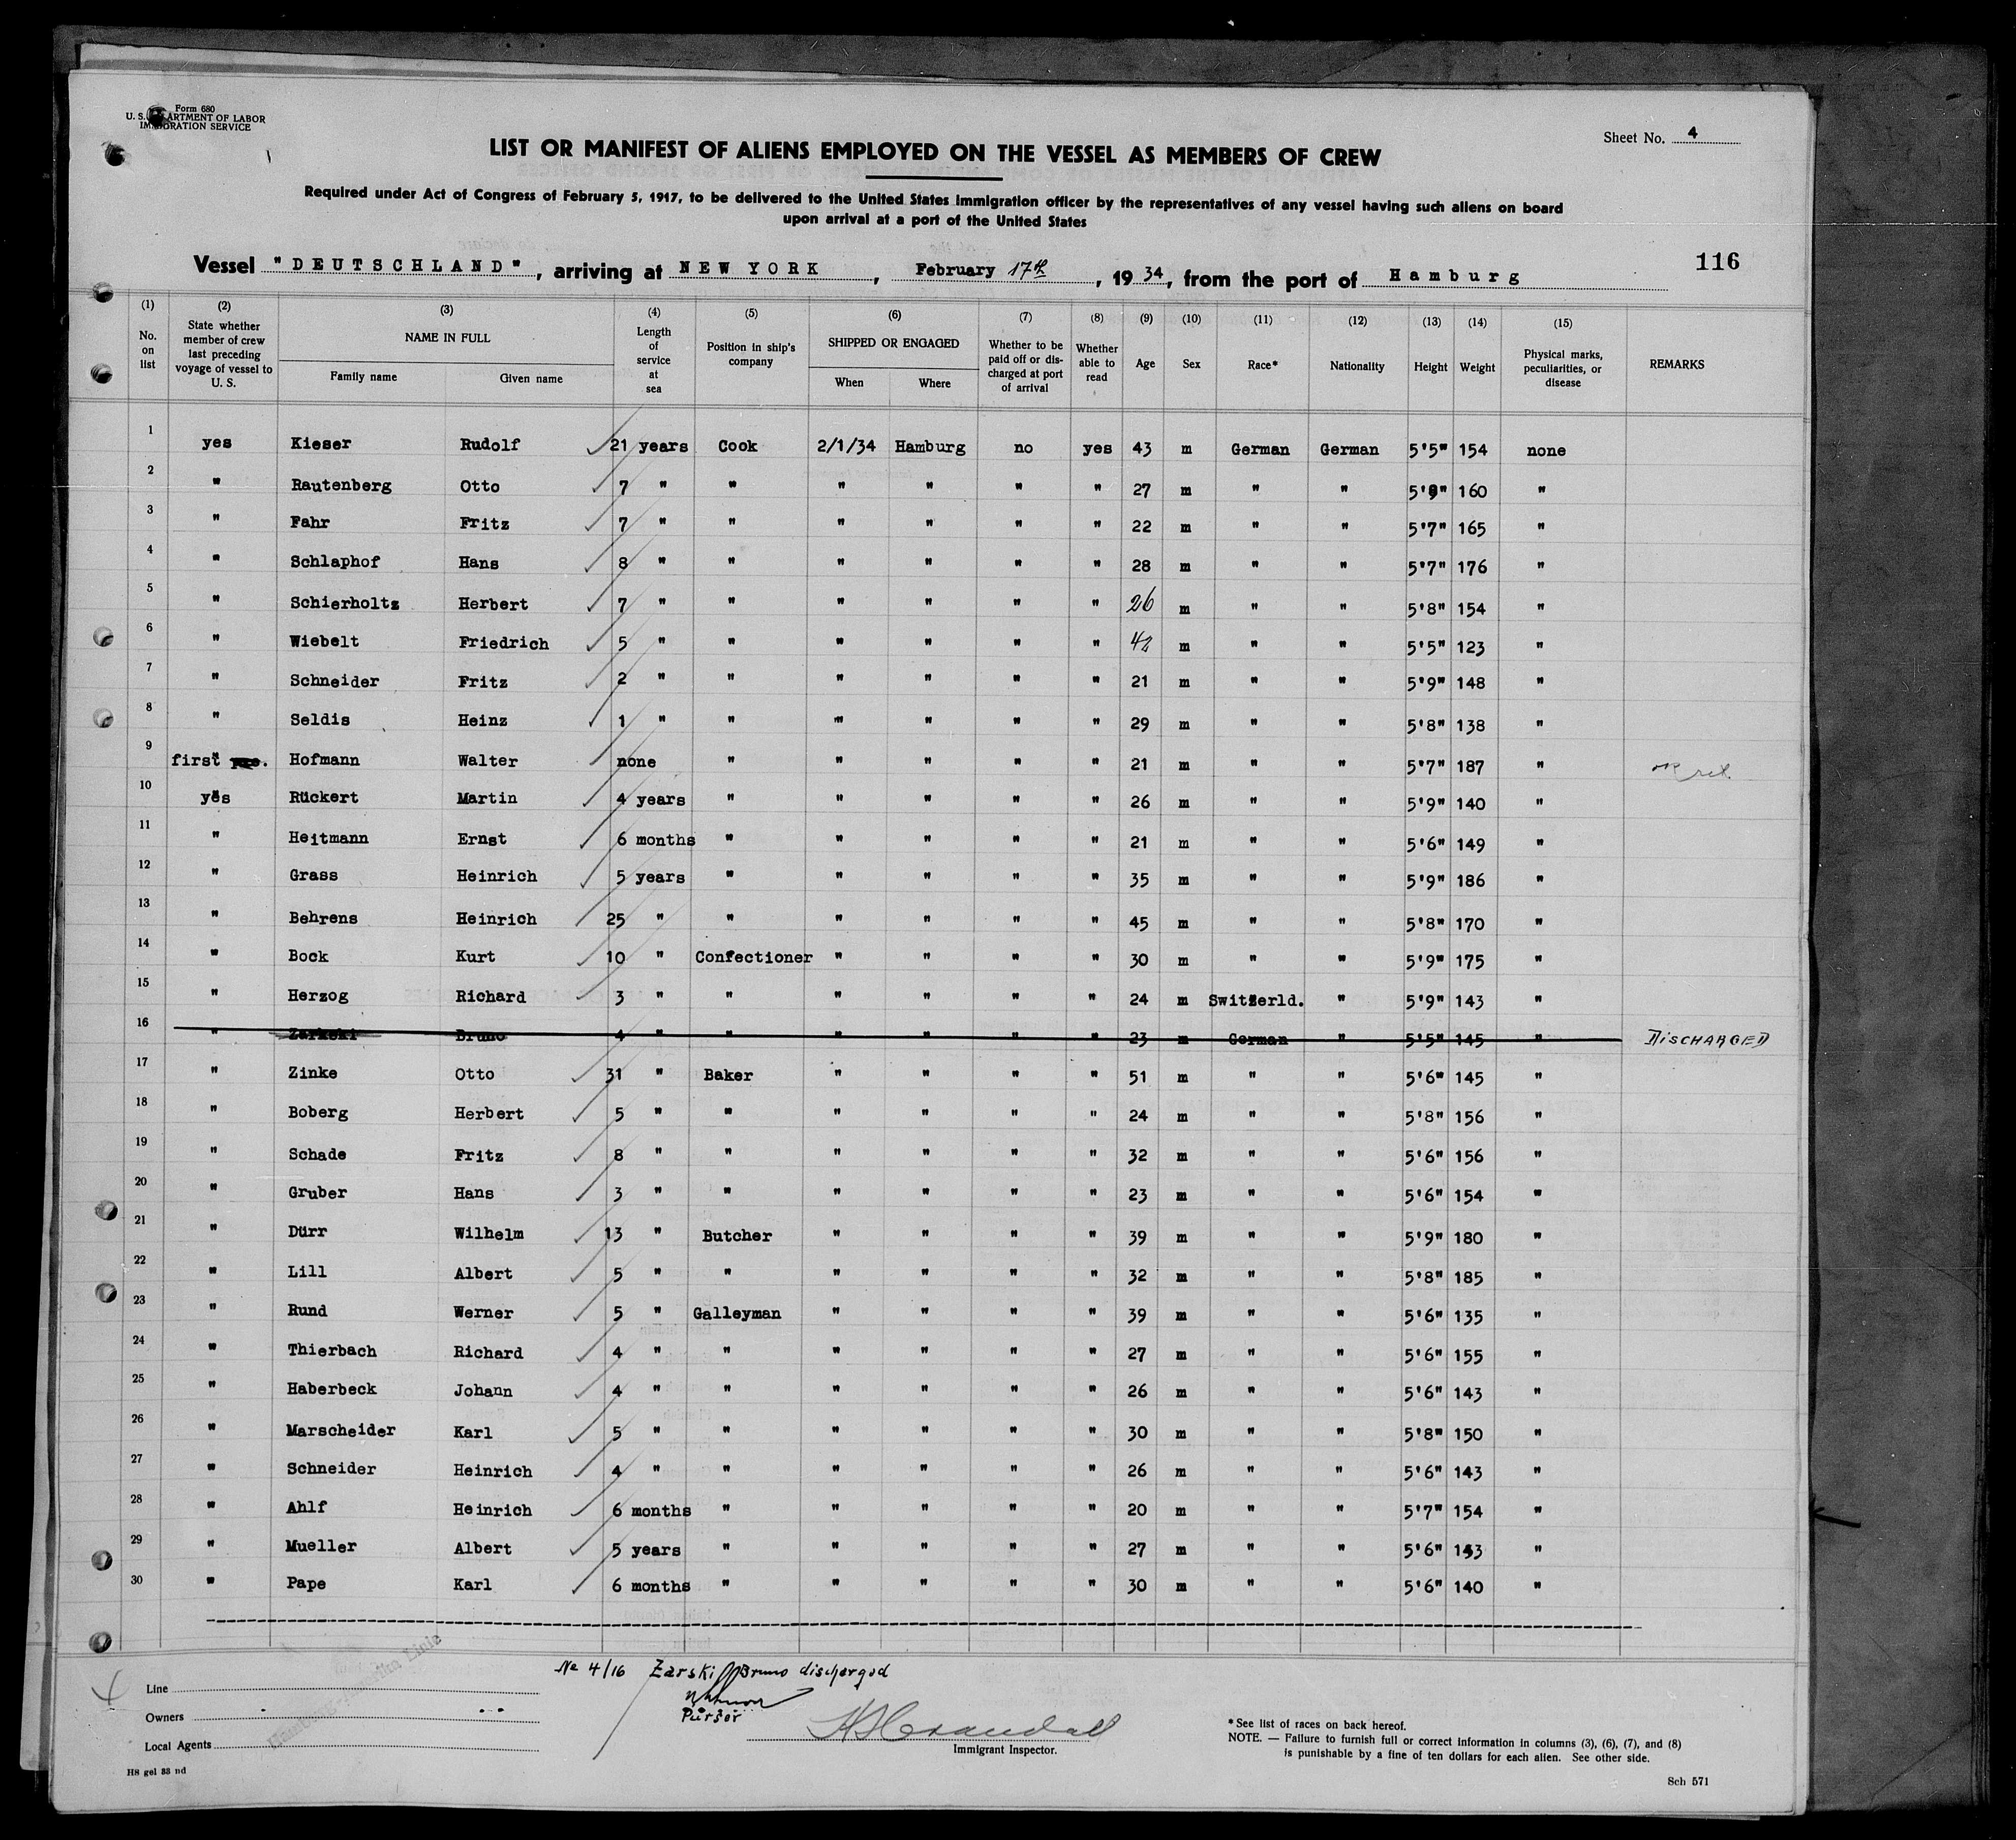 Form 680
U. S. DEPARTMENT OF LABOR
IMMIGRATION SERVICE
Sheet No. 4
LIST OR MANIFEST OF ALIENS EMPLOYED ON THE VESSEL AS MEMBERS OF CREW
Required under Act of Congress of February 5, 1917, to be delivered to the United States Immigration officer by the representatives of any vessel having such aliens on board
upon arrival at a port of the United States
116
Vessel "DEUTSCHLAND", arriving at NEW YORK, February 17th, 1934, from the port of Hamburg
(1) No. on list (2) State whether member of crew last preceding voyage of vessel to U. S. (3) NAME IN FULL Family name Given name (4) Length of service at sea (5) Position in ship's company (6) SHIPPED OR ENGAGED When Where (7) Whether to be paid off or discharged at port of arrival (8) Whether able to read (9) Age (10) Sex (11) Race* (12) Nationality (13) Height (14) Weight (15) Physical marks, peculiarities, or disease REMARKS
1 yes Kieser Rudolf 21 years Cook 2/1/34 Hamburg no yes 43 m German German 5'5" 154 none
2 " Rautenberg Otto 7 " " " " " " 27 m " " 5'9" 160 "
3 " Fahr Fritz 7 " " " " " " 22 m " " 5'7" 165 "
4 " Schlaphof Hans 8 " " " " " " 28 m " " 5'7" 176 "
5 " Schierholtz Herbert 7 " " " " " " 26 m " " 5'8" 154 "
6 " Wiebelt Friedrich 5 " " " " " " 42 m " " 5'5" 123 "
7 " Schneider Fritz 2 " " " " " " 21 m " " 5'9" 148 "
8 " Seldis Heinz 1 " " " " " " 29 m " " 5'8" 138 "
9 first Hofmann Walter none " " " " " 21 m " " 5'7" 187 "
10 yes Rückert Martin 4 years " " " " " 26 m " " 5'9" 140 "
11 " Heitmann Ernst 6 months " " " " " 21 m " " 5'6" 149 "
12 " Grass Heinrich 5 years " " " " " 35 m " " 5'9" 186 "
13 " Behrens Heinrich 25 " " " " " " 45 m " " 5'8" 170 "
14 " Bock Kurt 10 " Confectioner " " " " 30 m " " 5'9" 175 "
15 " Herzog Richard 3 " " " " " " 24 m Switzerld. " 5'9" 143 "
16 " Zarkski Bruno 4 " " " " " " 23 m German " 5'5" 145 " DISCHARGED
17 " Zinke Otto 31 " Baker " " " " 51 m " " 5'6" 145 "
18 " Boberg Herbert 5 " " " " " " 24 m " " 5'8" 156 "
19 " Schade Fritz 8 " " " " " " 32 m " " 5'6" 156 "
20 " Gruber Hans 3 " " " " " " 23 m " " 5'6" 154 "
21 " Dürr Wilhelm 13 " Butcher " " " " 39 m " " 5'9" 180 "
22 " Lill Albert 5 " " " " " " 32 m " " 5'8" 185 "
23 " Rund Werner 5 " Galleyman " " " " 39 m " " 5'6" 135 "
24 " Thierbach Richard 4 " " " " " " 27 m " " 5'6" 155 "
25 " Haberbeck Johann 4 " " " " " " 26 m " " 5'6" 143 "
26 " Marscheider Karl 5 " " " " " " 30 m " " 5'8" 150 "
27 " Schneider Heinrich 4 " " " " " " 26 m " " 5'6" 143 "
28 " Ahlf Heinrich 6 months " " " " " 20 m " " 5'7" 154 "
29 " Mueller Albert 5 years " " " " " 27 m " " 5'6" 143 "
30 " Pape Karl 6 months " " " " " 30 m " " 5'6" 140 "
No 4/16 Zarski Bruno discharged
Purser
Line
Owners
Local Agents
H8 gel 33 nd
Immigrant Inspector.
*See list of races on back hereof.
NOTE. — Failure to furnish full or correct information in columns (3), (6), (7), and (8)
is punishable by a fine of ten dollars for each alien. See other side.
Sch 571